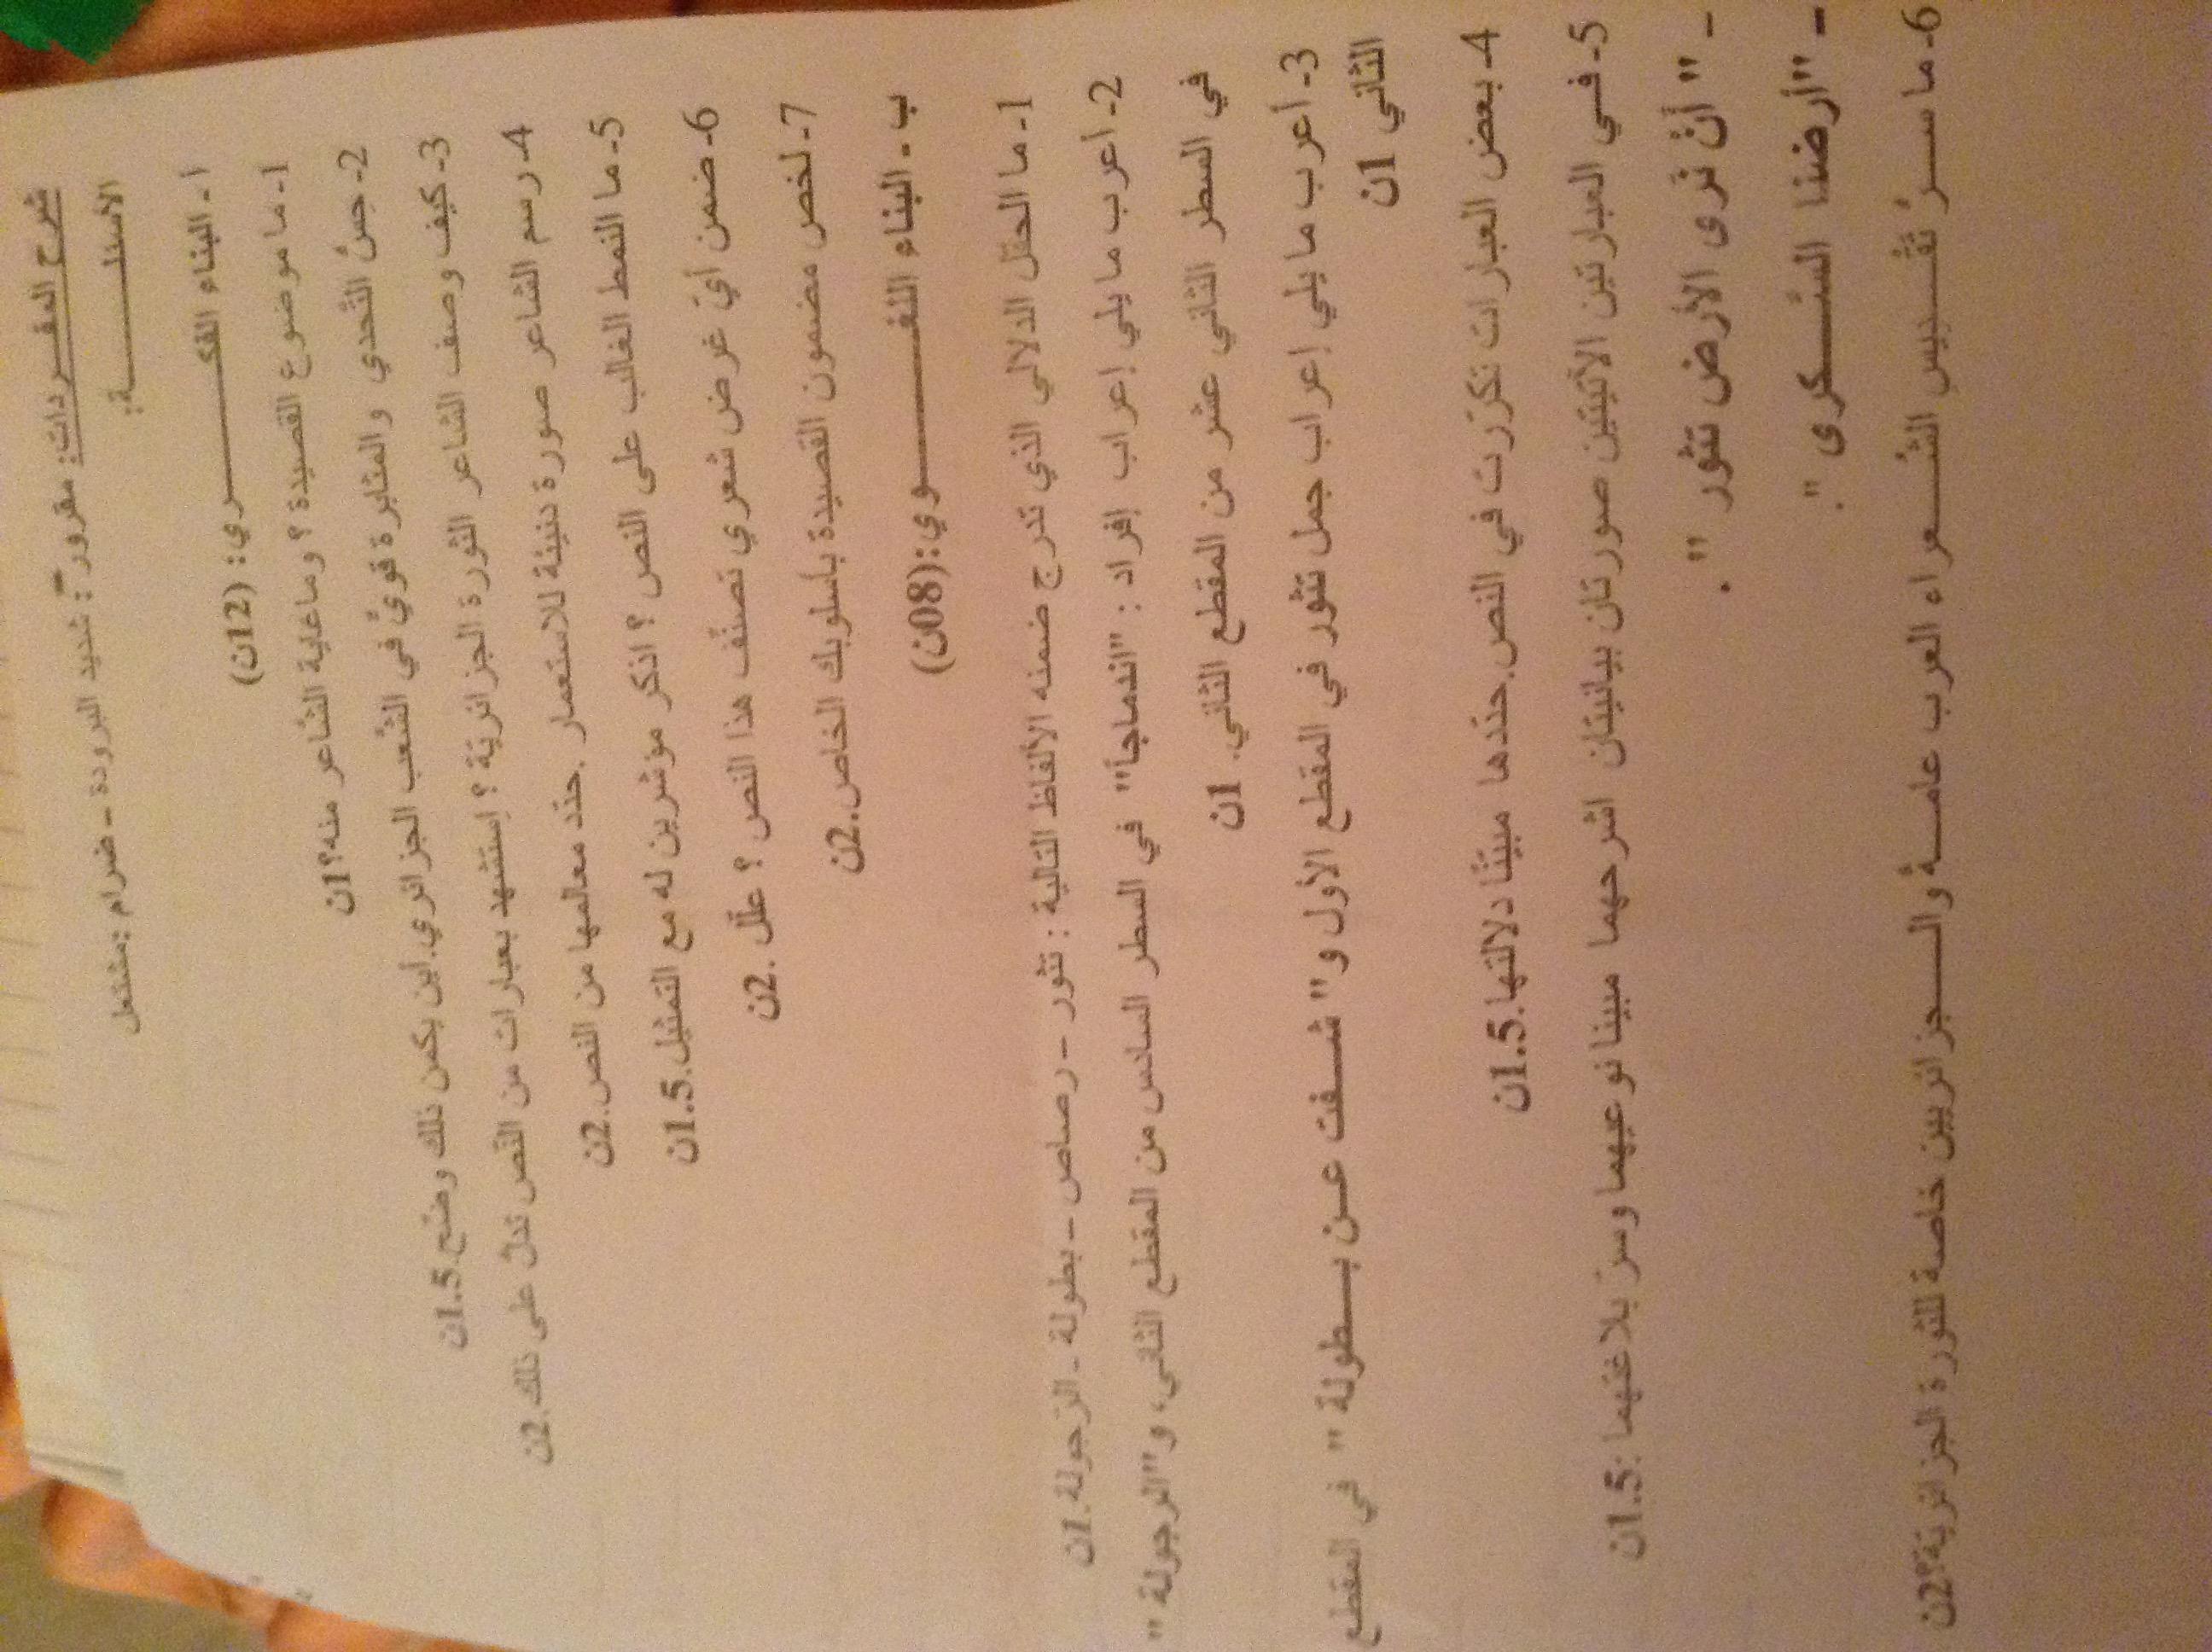 شرح المفـردات: مقرور: شديد البرودة – ضرام :مشتعل
الأسئلـــــــــة:
ا - البناء الفكــــــــــري: (12ن)
1- ما موضوع القصيدة ؟ وماغاية الشاعر منه؟1ن
2- حسّ التّحدي والمثابرة قويّ في الشّعب الجزائري.أين يكمن ذلك وضّح.1.5ن
3- كيف وصف الشاعر الثورة الجزائريّة ؟ إستشهد بعبارات من النّص تدلّ على ذلك.2ن
4- رسم الشاعر صورة دنيئة للاستعمار .حدّد معالمها من النص.2ن
5- ما النمط الغالب على النص ؟ اذكر مؤشرين له مع التمثيل.1.5ن
6- ضمن أيّ غرض شعري تصنّف هذا النص ؟ علّل .2ن
7- لخص مضمون القصيدة بأسلوبك الخاص.2ن
ب - البناء اللغـــــــــوي:(08ن)
1- ما الحقل الدلالي الذي تدرج ضمنه الألفاظ التالية : تثور – رصاص – بطولة - الرّجولة.1ن
2- أعرب مايلي إعراب إفراد : "اندماجاً" في السطر السادس من المقطع الثاني، و"الرجولة "
في السطر الثاني عشر من المقطع الثاني. 1ن
3- أعرب مايلي إعراب جمل تثور في المقطع الأول و" شـفت عـن بـطولة " في المقطع
الثاني 1ن
4- بعض العبارات تكرّرت في النص.حدّدها مبيّنا دلالتها.1.5ن
5- فـي العبارتين الآتيتين صورتان بيانيتان اشرحهما مبينا نوعيهما وسرّ بلاغتهما :1.5ن
– " أنْ نرى الأرض تثور ".
– "أرضنا السّــكرى ".
6- ما سـرُّ تقْـديس الشّـعراء العرب عامـةً والــجزائريين خاصة للثورة الجزائريّة؟2ن